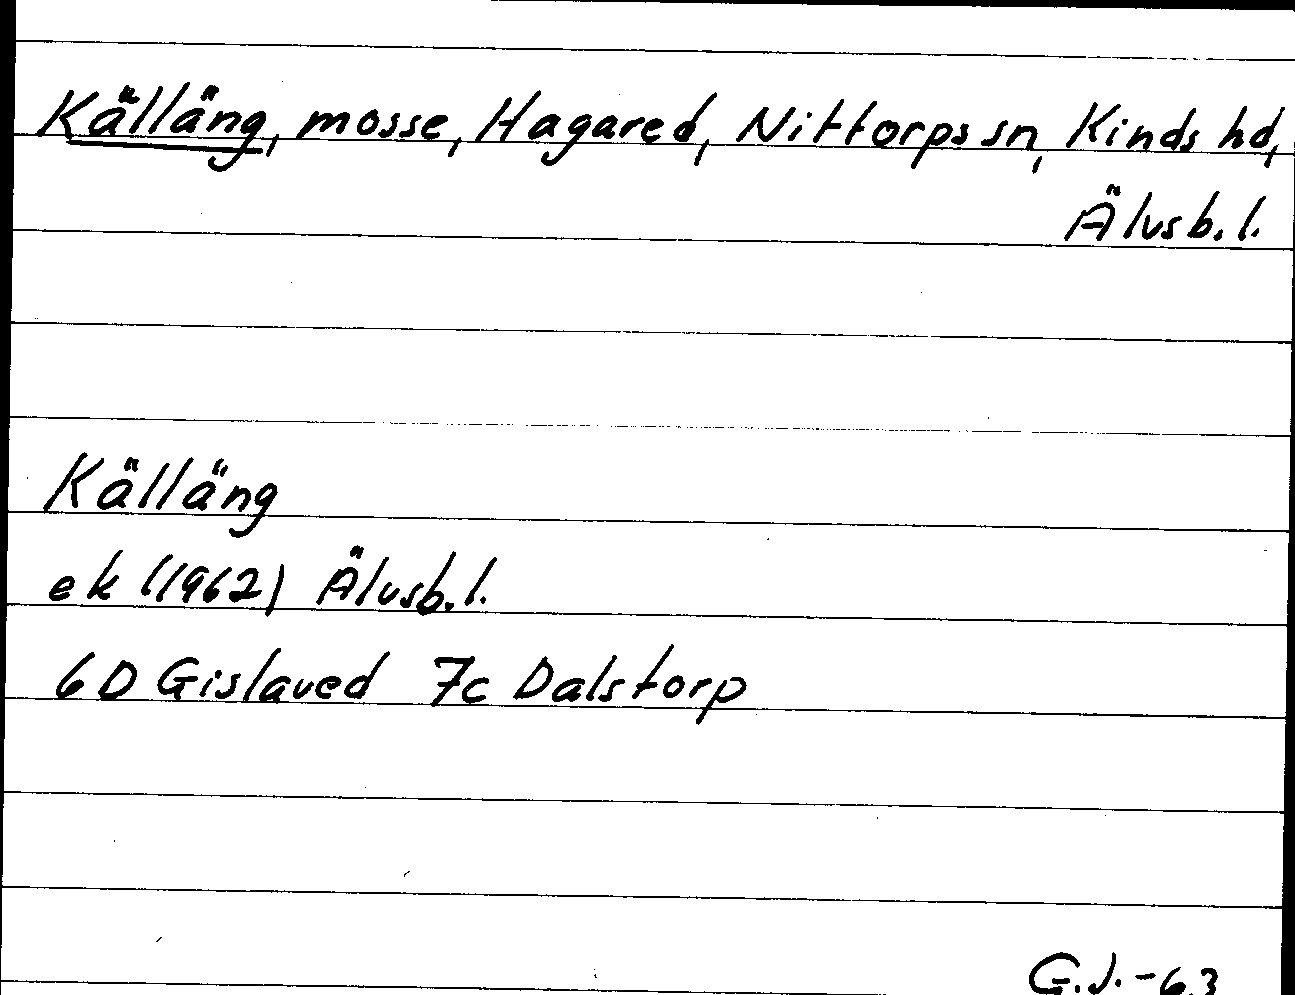 Källäng, mosse, Hagared, Nittorps sn, Kinds hd,
Älvsb.l.
Källäng
ek (1962) Älvsb.l.
6D Gislaved 7c Dalstorp
G.J.-63